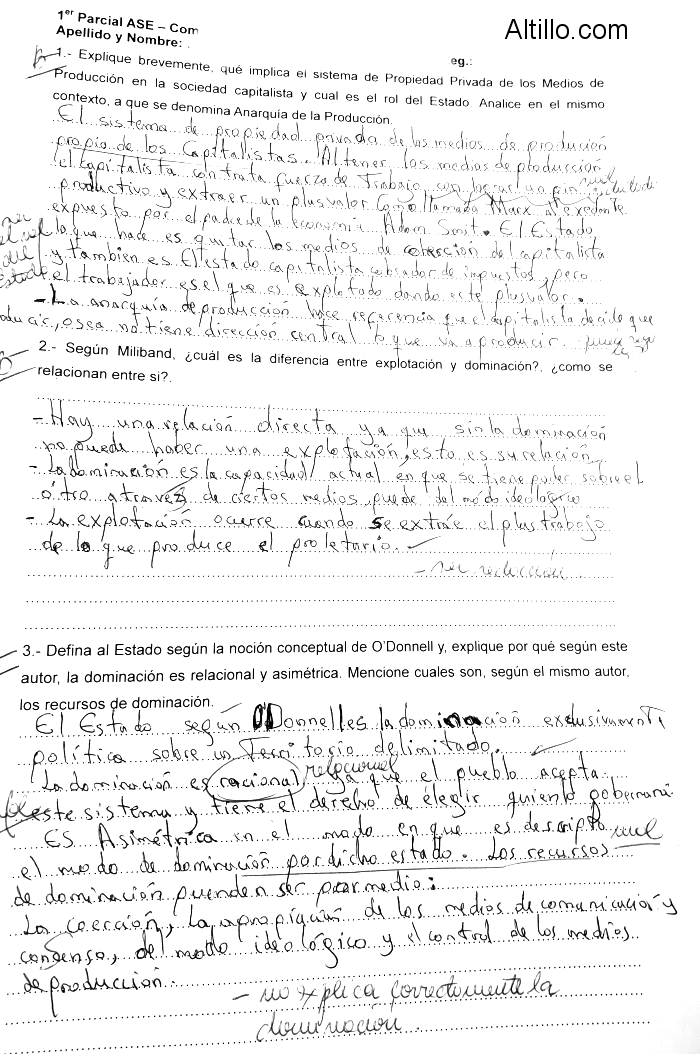 1er Parcial ASE – Com
Altillo.com
Apellido y Nombre:
eg.:
1.- Explique brevemente, qué implica el sistema de Propiedad Privada de los Medios de
Producción en la sociedad capitalista y cual es el rol del Estado. Analice en el mismo
contexto, a que se denomina Anarquía de la Producción.
El sistema de propiedad privada de los medios de produción
propio de los Capitalistas. Al tener los medios de ploducción
el capitalista contrata fuerza de Trabajo, con lograr un fin
productivo y extraer un plusvalor como llamaba Marx al exedente
expuesto por el padre de la economia Adam Smit. El Estado
lo que hace es quitar los medios de coherción del capitalista
y tambien es El estado capitalista cobrador de impuestos, pero
el trabajador es el que es explotado dando este plusvalor.
- La anarquía de producción hace referencia que el capitalista decide que
producir, o sea no tiene dirección central lo que va a producir.
2.- Según Miliband, ¿cuál es la diferencia entre explotación y dominación?, ¿como se
relacionan entre si?.
- Hay una relación directa ya que sin la dominación
no puede haber una explotación, esto es su relación.
- La dominación es la capacidad actual en que se tiene poder sobre el
otro atravez de ciertos medios puede del modo ideologico
- La explotación ocurre cuando se extráe el plustrabajo
de lo que produce el proletario.
- ver redacción
3.- Defina al Estado según la noción conceptual de O'Donnell y, explique por qué según este
autor, la dominación es relacional y asimétrica. Mencione cuales son, según el mismo autor,
los recursos de dominación.
El Estado según O'Donnell es la dominación exclusivamente
política sobre un Territorio delimitado.
relacional
La dominación es racional ya que el pueblo acepta
este sistema y tiene el derecho de elegir quien lo gobernará
ES Asimétrica en el modo en que es descripto
el modo de dominación por dicho estado. Los recursos
de dominación puenden ser por medio:
La Coerción, La apropiación de los medios de comunicación y
consenso, del modo ideológico y el control de los medios
de producción.
- no explica correctamente la
dominación.